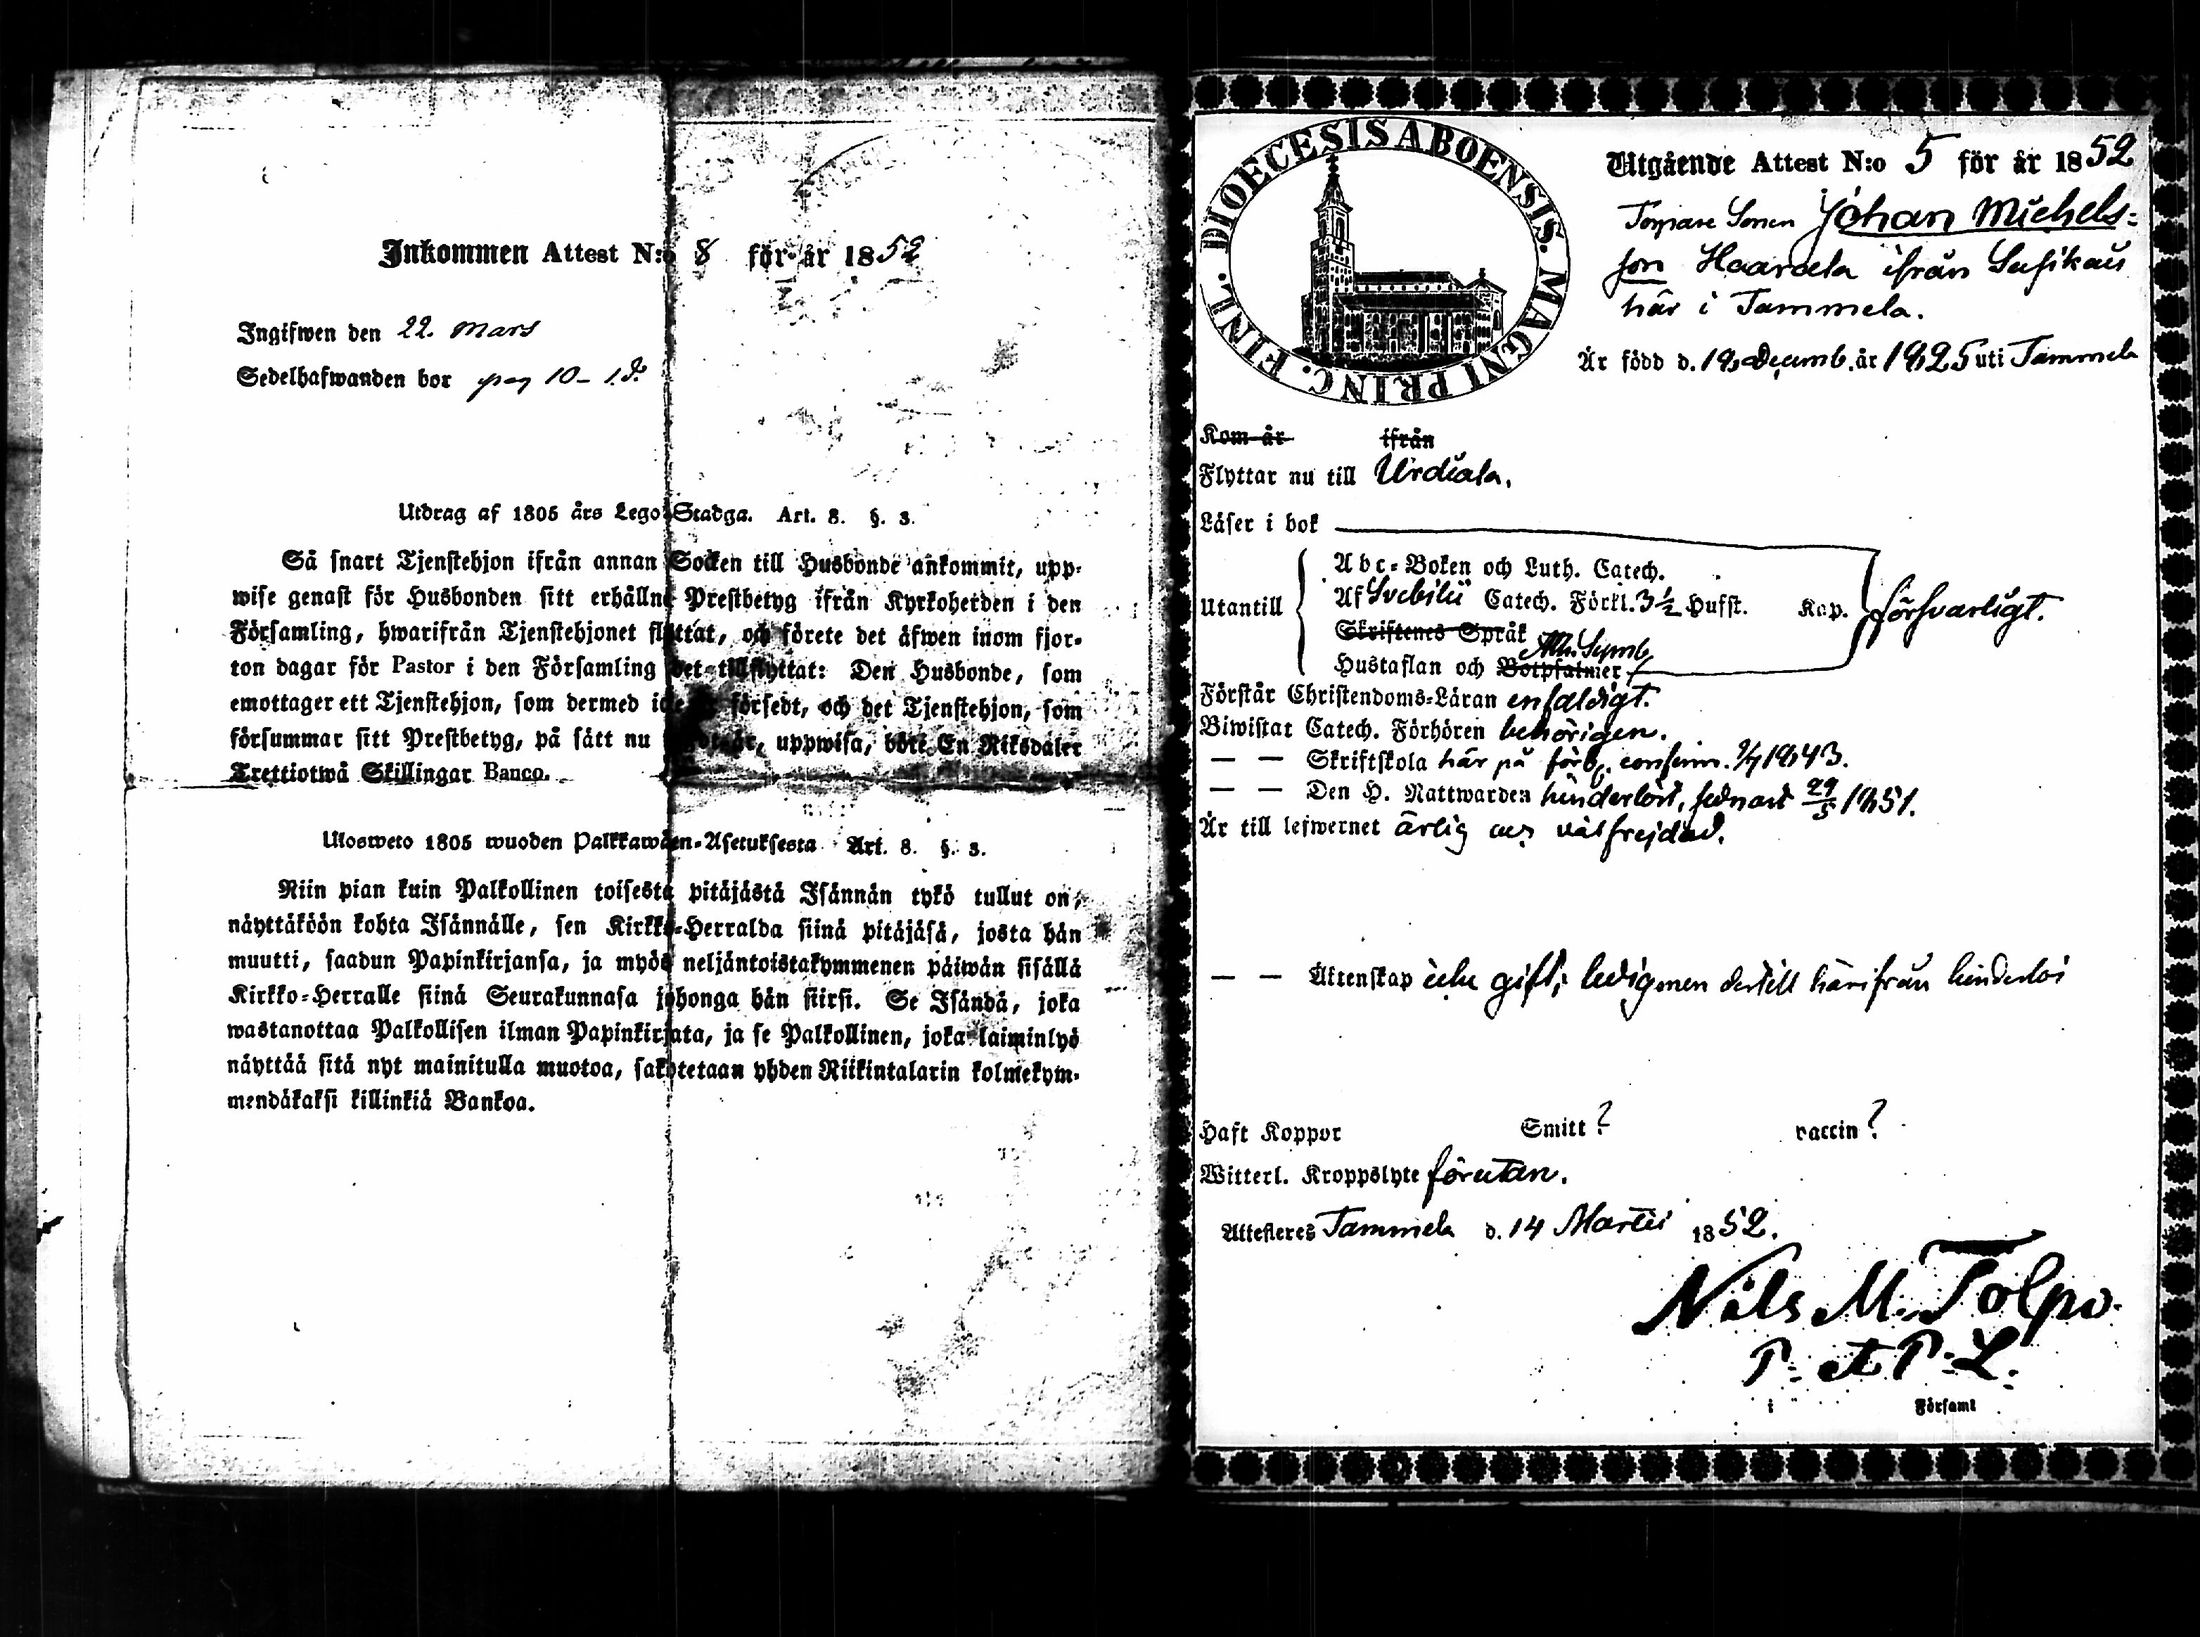 Inkommen Attest N:o 8 för år 1852
Ingifwen den 22. Mars
Sedelhafwanden bor pag 10 -
Utdrag af 1805 års Lego-Stadga. Art. 8. §. 3.
Så snart Tjenstehjon ifrån annan Socken till Husbonde ankommit, upp-
wise genast för Husbonden sitt erhållne Prestbetyg ifrån Kyrkoherden i den
Församling, hwarifrån Tjenstehjonet flyttat, och förete det äfwen inom fjor-
ton dagar för Pastor i den Församling det tillflyttat: Den Husbonde, som
emottager ett Tjenstehjon, som dermed icke är försedt, och det Tjenstehjon, som
försummar sitt Prestbetyg, på sätt nu är, uppwisa, böte En Riksdaler
Trettiotwå Skillingar Banco.
Ulosweto 1805 wuoden Palkkawäen-Asetuksesta Art. 8. §. 3.
Niin pian kuin Palkollinen toisesta pitäjästä Isännän tykö tullut on,
näyttäköön kohta Isännälle, sen Kirkko-Herralda siinä pitäjäsä, josta hän
muutti, saadun Papinkirjansa, ja myös neljäntoistakymmenen päiwän sisällä
Kirkko-Herralle siinä Seurakunnasa johonga hän siirsi. Se Isändä, joka
wastanottaa Palkollisen ilman Papinkirjata, ja se Palkollinen, joka laiminlyö
näyttää sitä nyt mainitulla muotoa, sakotetaan yhden Riikintalarin kolmekym-
mendäkaksi killinkiä Bankoa.
DIOECESIS ABOENSIS. MAGNI PRINC. FINL.
Utgående Attest N:o 5 för år 1852
Torpare Sonen Johan Michels-
son Haarala ifrån Susikas
här i Tammela.
Är född d. 18 Decemb. år 1825 uti Tammela
Kom år ifrån
Flyttar nu till Urdiala.
Läser i bok
Utantill
Abc-Boken och Luth. Catech.
Af Svebilii Catech. Förkl. 3½ Hufst. Kap. försvarligt.
Skriftenes Språk
Ath. Symb.
Hustaflan och Botpsalmer
Förstår Christendoms-Läran enfaldigt.
Biwistat Catech. Förhören behörigen.
— — Skriftskola här på förb. confirm. 1843.
— — Den H. Nattwarden hinderlöst, sednast 29/5 1851.
Är till lefwernet ärlig och välfrejdad.
— — Äktenskap icke gift; ledig men dertill härifrån hinderlös
Haft Koppor Smitt ? vaccin ?
Witterl. Kroppslyte förutan.
Attesteres Tammela d. 14 Martii 1852.
Nils M. Tolpo.
P. et P. L.
i Församl